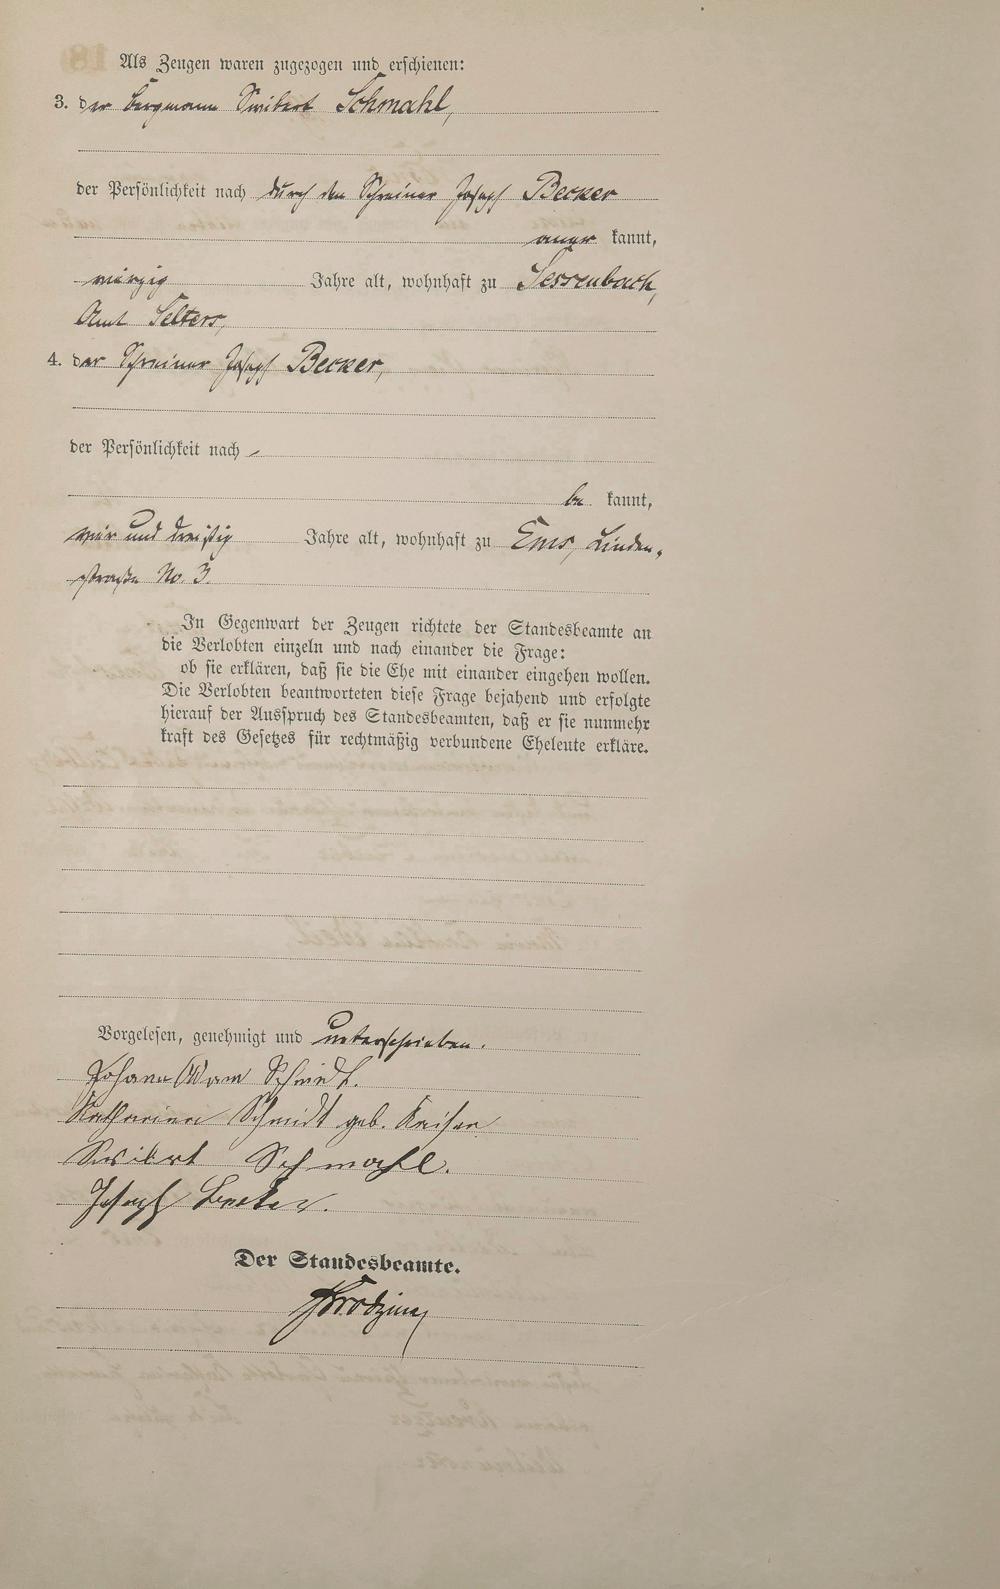 Als Zeugen waren zugezogen und erschienen:
3. der Bergmann Suitbert Schmahl,
der Persönlichkeit nach durch den Schreiner Joseph Becker
aner kannt,
vierzig Jahre alt, wohnhaft zu Sessenbach,
Amt Selters,
4. der Schreiner Joseph Becker,
der Persönlichkeit nach
be kannt,
vier und dreißig Jahre alt, wohnhaft zu Ems, Linden-
straße No. 3.
In Gegenwart der Zeugen richtete der Standesbeamte an
die Verlobten einzeln und nach einander die Frage:
ob sie erklären, daß sie die Ehe mit einander eingehen wollen.
Die Verlobten beantworteten diese Frage bejahend und erfolgte
hierauf der Ausspruch des Standesbeamten, daß er sie nunmehr
kraft des Gesetzes für rechtmäßig verbundene Eheleute erkläre.
Vorgelesen, genehmigt und unterschrieben.
Johann Adam Schmidt.
Katharina Schmidt geb. Kaiser
Suitbert Schmahl.
Joseph Becker.
Der Standesbeamte.